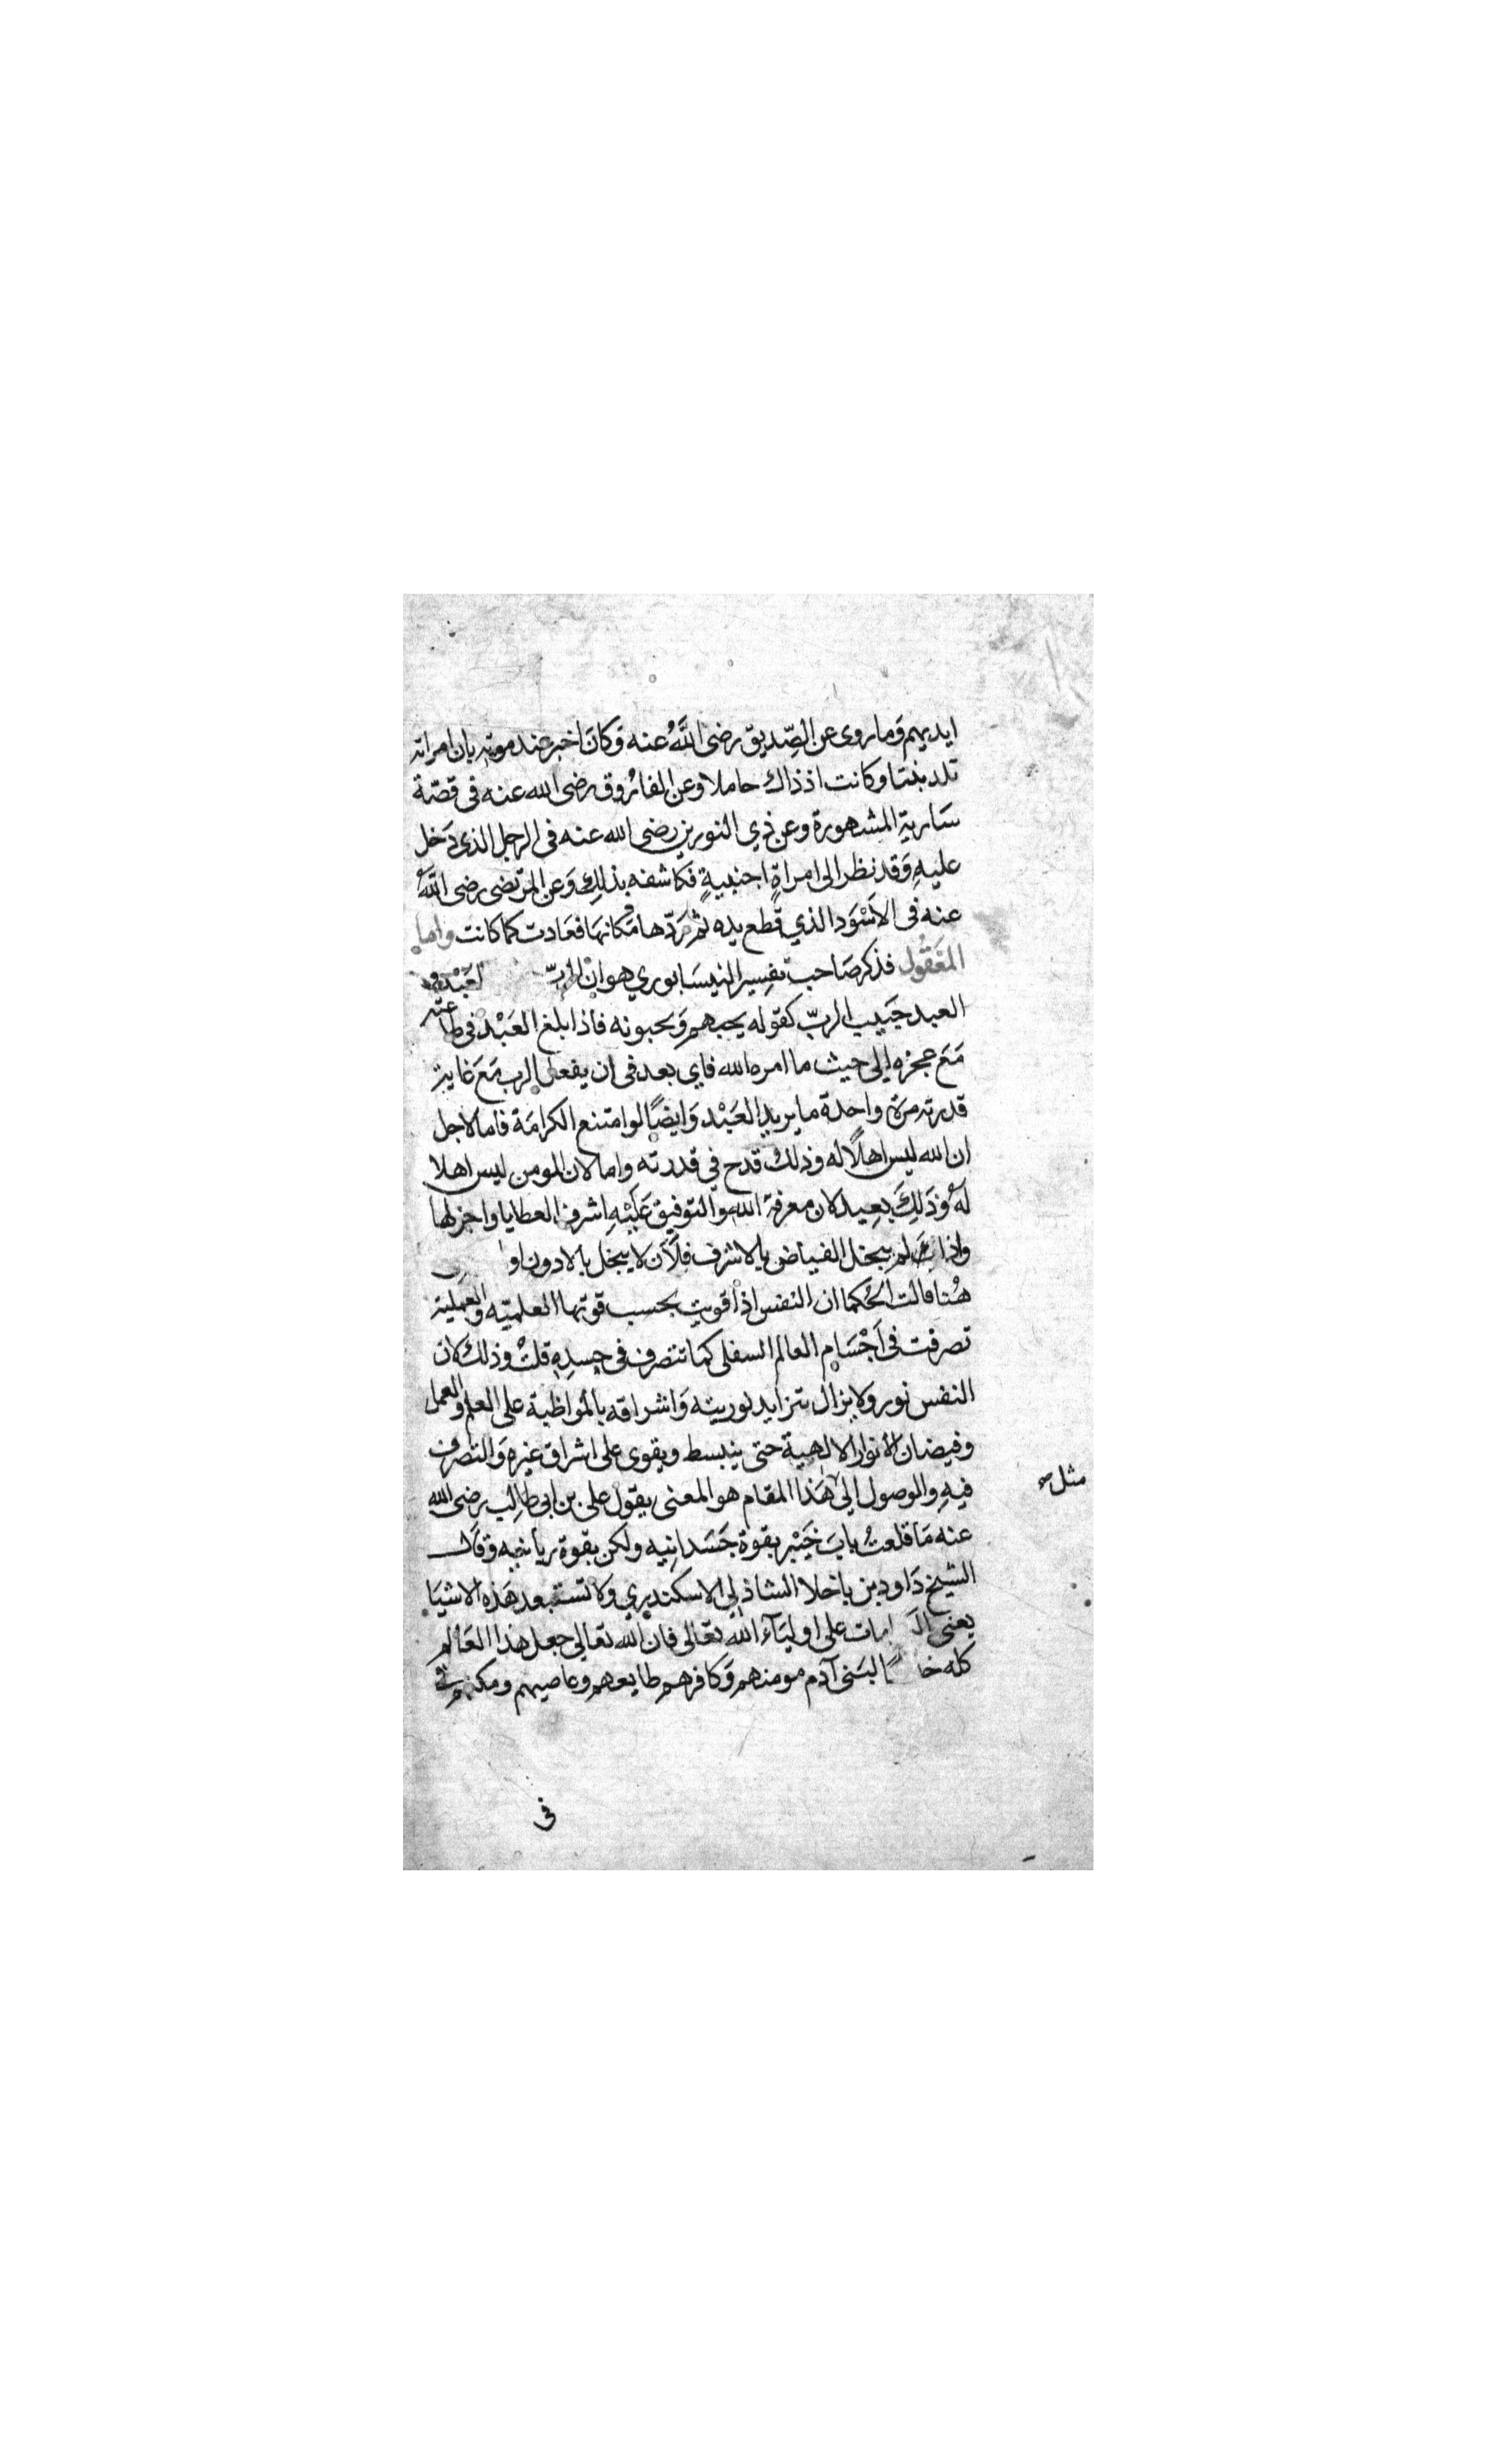 ايديهم وَما روى عن الصِّديق رضى اللَّهُ عنه وَكانَ اخبر عند موته بان امراته
تلد بنتا وكانت اذ ذاك حاملا وعن الفارُوق رضى الله عنه فى قصّة
سَارية المشهورة وعن ذي النورين رضى الله عنه فى الرجل الذى دَخل
عليهِ وَقد نظر الى امراةٍ اجنبيةٍ فكاشفه بذلِك وَعن المرتضى رضى اللَّهُ
عنه فى الاَسْوَد الذي قطع يده ثم رَدّها مَكانهَا فعَادت كما كانت واما
المَعْقُول فذكر صَاحب تفسِير النيسَابوري هو ان الربّ لعَبْده و
العبد حَبيب الربّ كقوله يحبهم وَيحبونه فاذا بلغ العَبْد فى طاعته
مَعَ عجزه اِلى حيث ما امره الله فاي بعد فى ان يفعل الرب مَعَ غاية
قدرته مرة واحدة ما يريد العَبْد وَايضًا لو امتنع الكرامَة فاما لاجل
ان الله ليس اهلًا له وذلك قدح فى قدرته واما لان المومن ليس اهلا
لَهُ وَذَلِكَ بعِيد لان معرفة الله والتوفيق عَلَيْهِ اشرف العطايا واجزلها
واذا لم يبخل الفياض بالاشرف فلَاَن لا يبخل بالادون او
هُنا قالت الحُكما ان النفس اذا قويت بحسب قوتها العلميّه والعملية
تصرفت فى اَجْسَام العالم السفلى كمَا تتصرف فى جسدِهِ قلتُ وذلك لان
النفس نور ولا يزال يتزايد نوريته وَاشراقه بالمُواظبة على العلم والعمل
وفيضان الانوار الالهية حتى ينبسط ويقوى على اشراق غيره وَالتصرف
فيهِ والوصول اِلىٰ هَذا المقام هو المعنى بقول على بن ابى طالِب رضى الله
مثل صح
عنه مَا قلعتُ بابَ خَيْبر بقوة جَسَدانِيه ولكن بقوة ربانيه وَقَال
الشيخ دَاود بن باخلا الشاذلى الاسكندري ولا تستبعد هَذه الاشيَا
يعنى امات على اوليَآء اللّه تعَالى فان الله تعَالى جعل هذا العَالم
كله خا ًا لبَنى آدم مومنهم وَكافرهم طايعهم وعاصيهم ومكنهم فى
فى